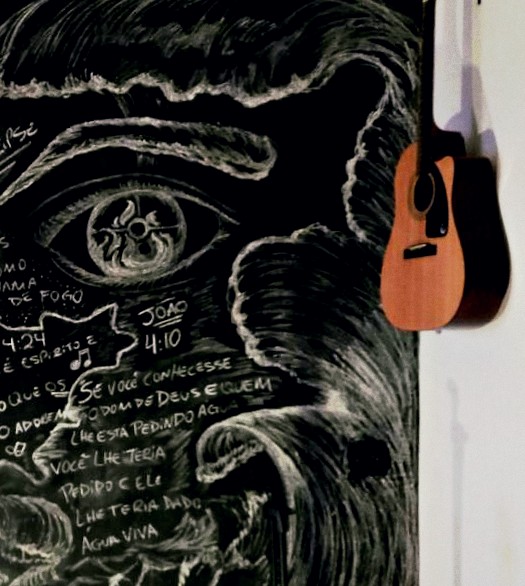 OMO
DE FOGO
4:24
É ESPIRITO E
JOÃO
4:10
O QUE OS
SE VOCÊ CONHECESSE
O DOM DE DEUS E QUEM
LHE ESTÁ PEDINDO AGUA
VOCÊ LHE TERIA
PEDIDO E ELE
LHE TERIA DADO
AGUA VIVA